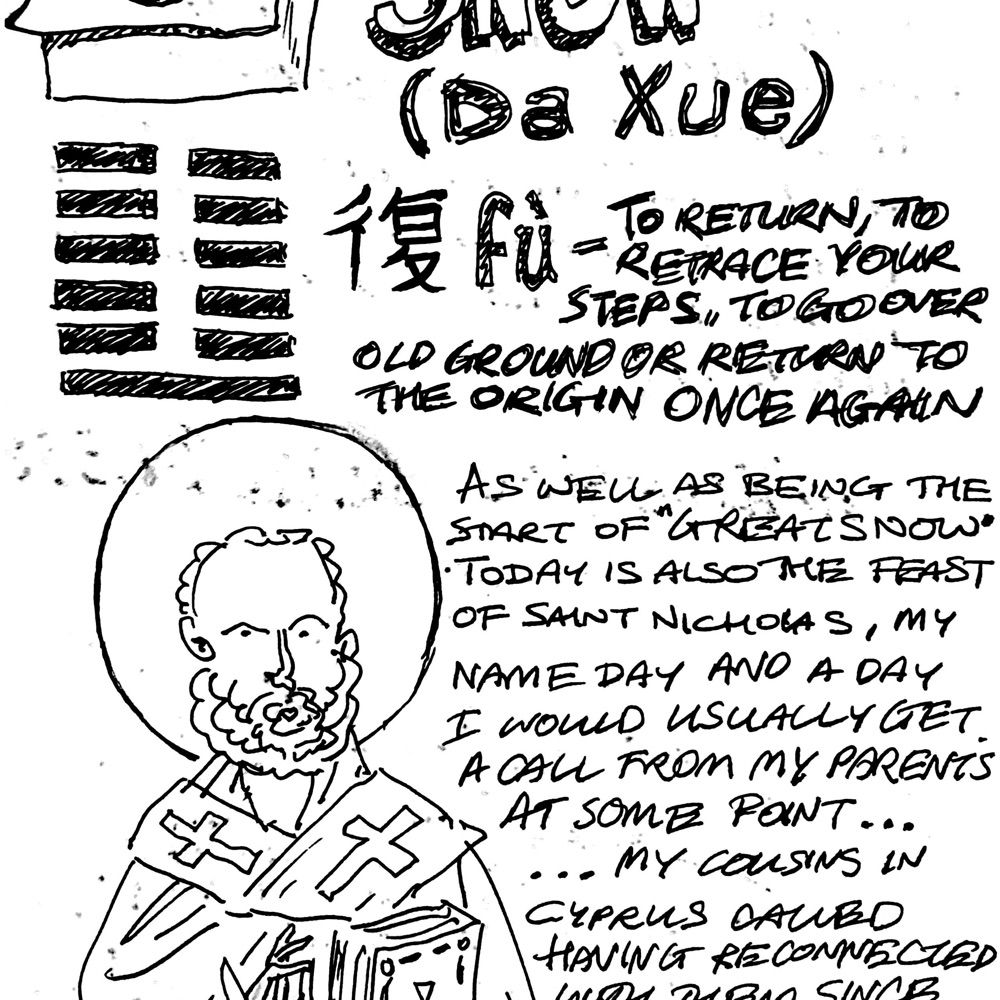 SNOW
(Da Xue)
復 fù = TO RETURN, TO
RETRACE YOUR
STEPS,, TO GO OVER
OLD GROUND OR RETURN TO
THE ORIGIN ONCE AGAIN
AS WELL AS BEING THE
START OF "GREAT SNOW"
TODAY IS ALSO THE FEAST
OF SAINT NICHOLAS, MY
NAME DAY AND A DAY
I WOULD USUALLY GET
A CALL FROM MY PARENTS
AT SOME POINT...
... MY COUSINS IN
CYPRUS CALLED
HAVING RECONNECTED
WITH THEM SINCE